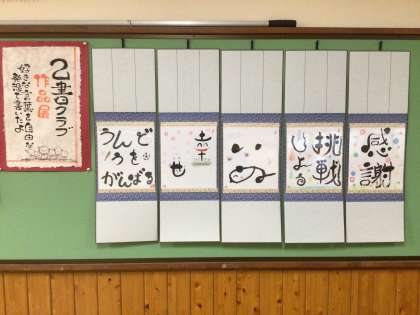 己書クラブ
作品展
好きな言葉を自由な
発想で書いたよ
感謝
挑戦
しよる
いぬ
幸せ
うんど
うを
がんばる